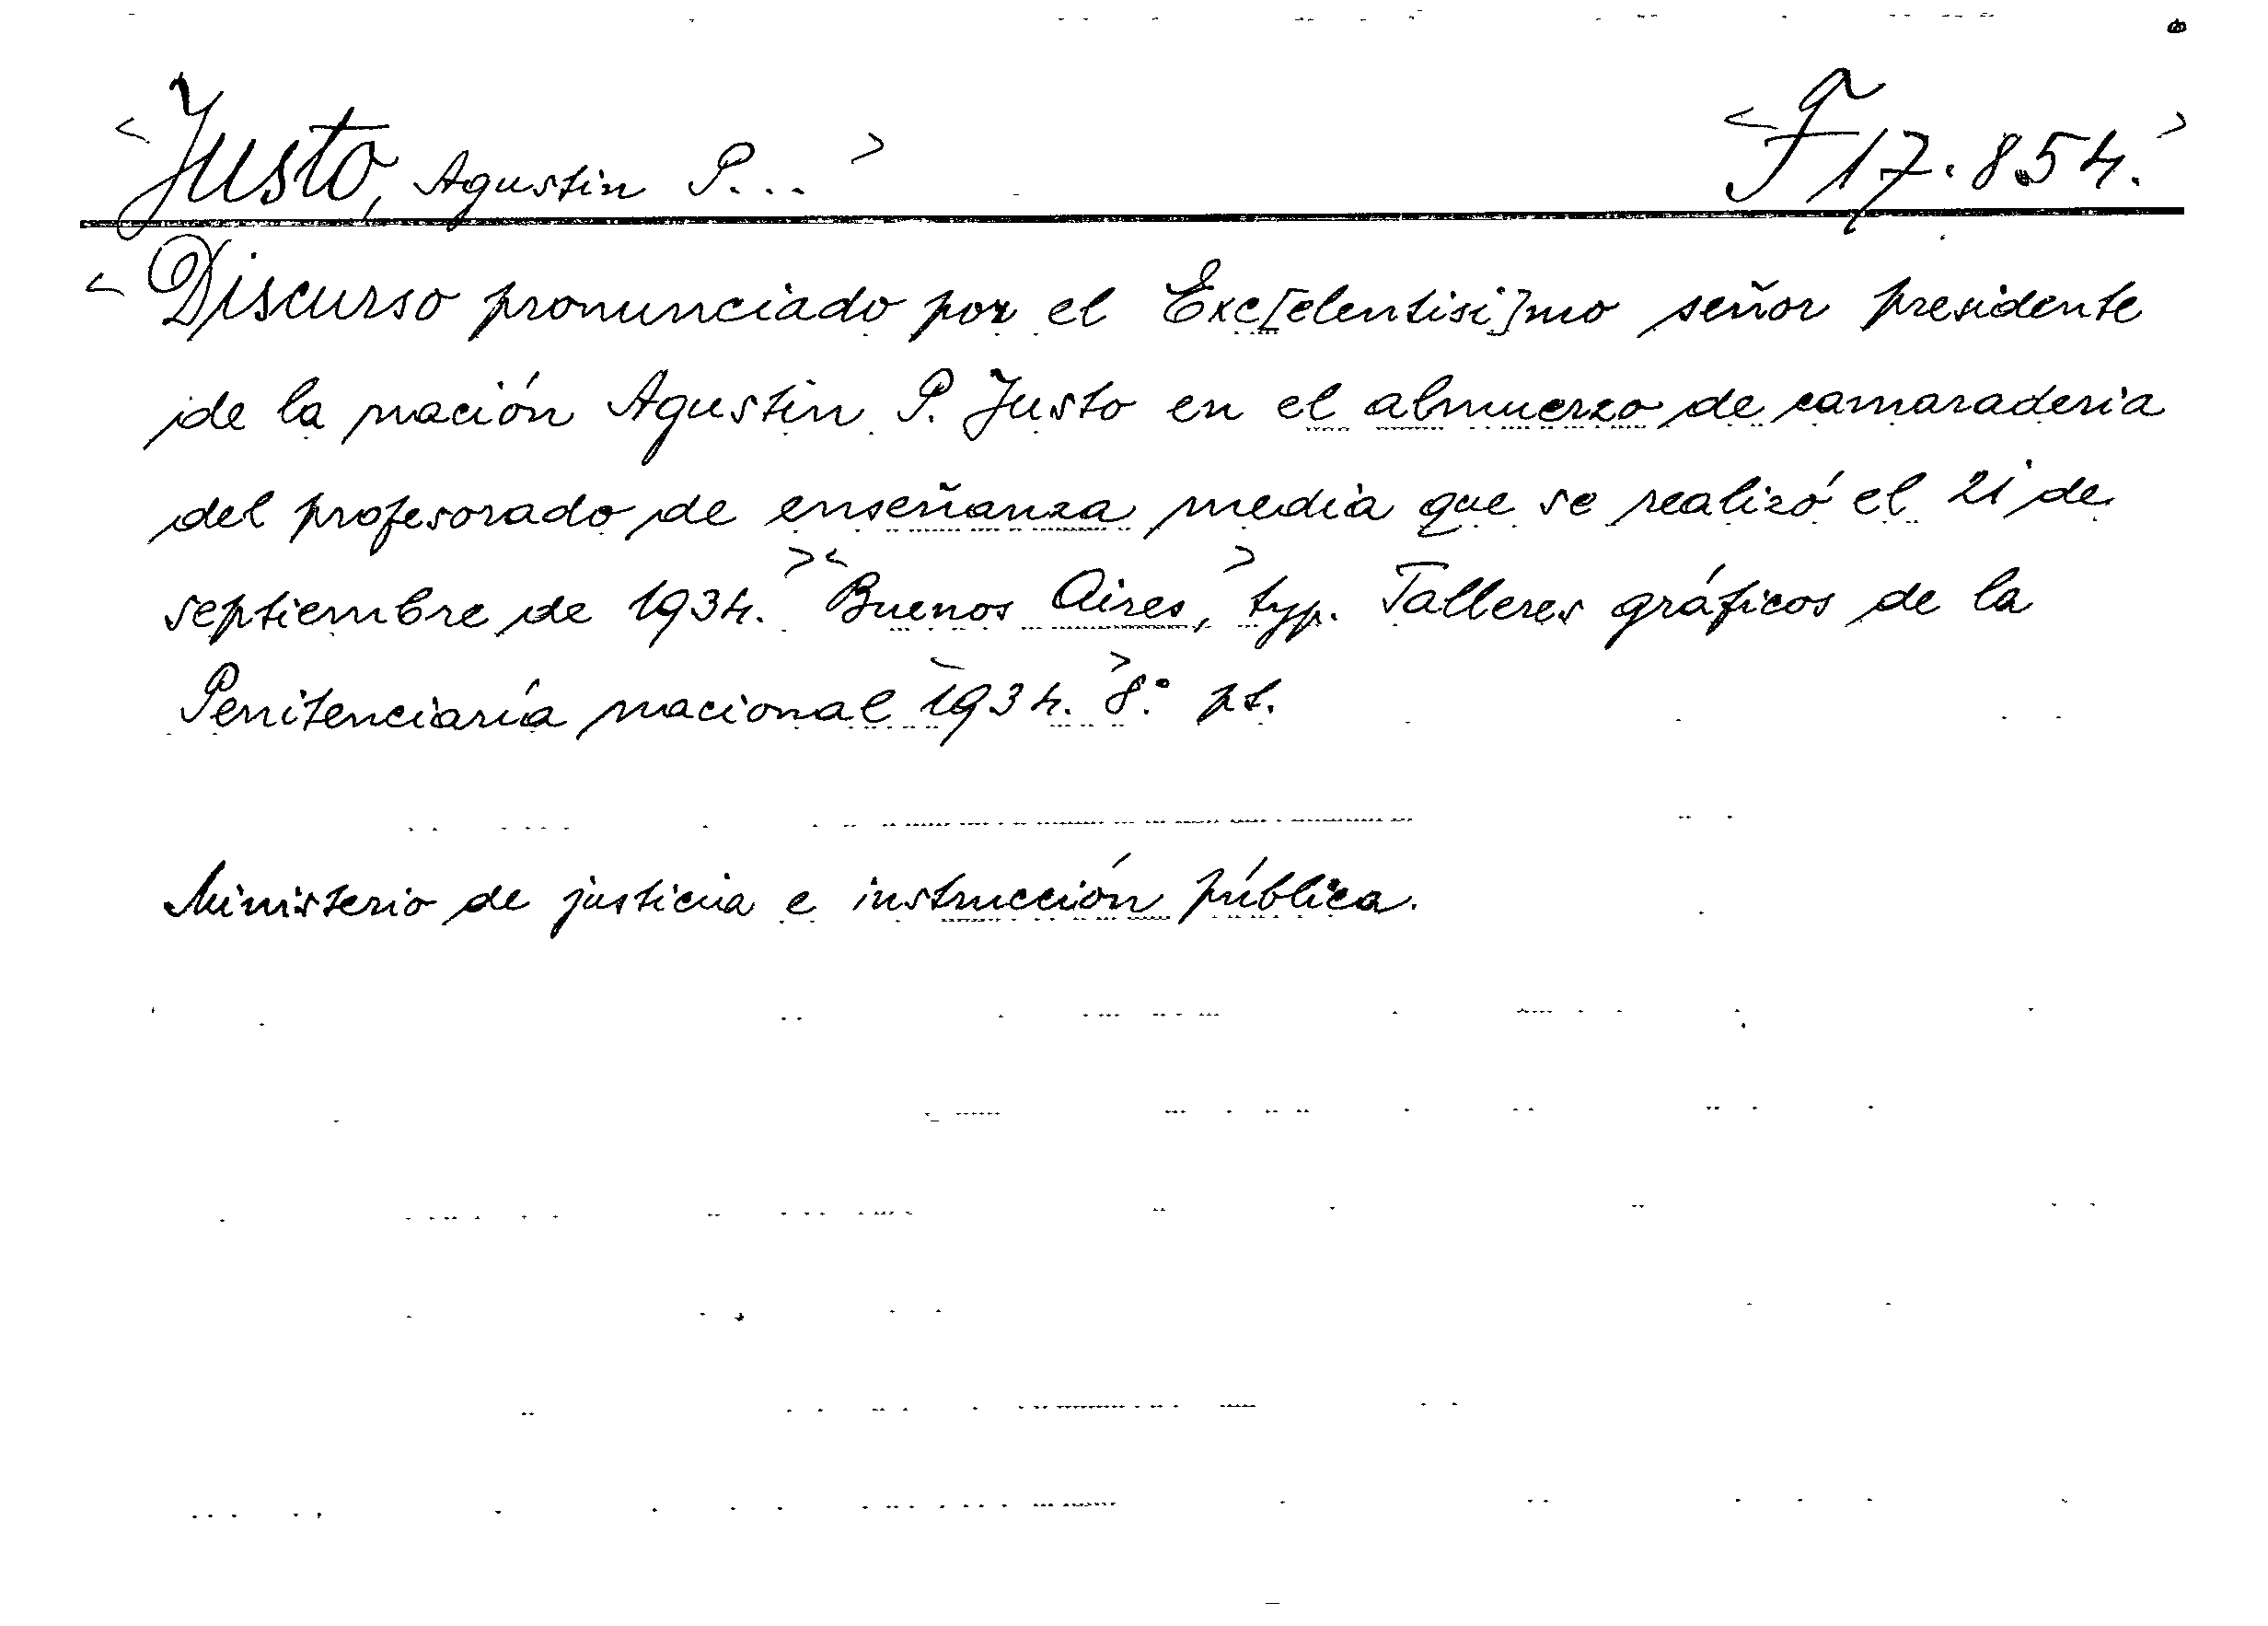 <Justo, Agustin P...> <F 17.854.>
<Discurso pronunciado por el Exc[elentisi]mo señor presidente
de la nación Agustin P. Justo en el almuerzo de camaraderia
del profesorado de enseñanza media que se realizó el 21 de
septiembre de 1934.> <Buenos Aires,> typ. Talleres gráficos de la
Penitenciaría nacional <1934.> 8.° pt.
Ministerio de justicia e instrucción pública.